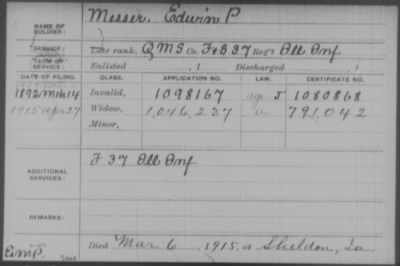 NAME OF SOLDIER: Messer, Edwin P
SERVICE: Late rank, Q M S Co. F & B 37 Reg't Ill Inf
TERM OF SERVICE: Enlisted , 1 Discharged , 1
DATE OF FILING. CLASS. APPLICATION NO. LAW. CERTIFICATE NO.
1892 Mch 14 Invalid, 1098167 age J 1080868
1915 Apr 27 Widow, 1,046,237 791,042
Minor,
ADDITIONAL SERVICES: F 37 Ill Inf
REMARKS:
Died Mar 6, 1915, at Sheldon, Ia.